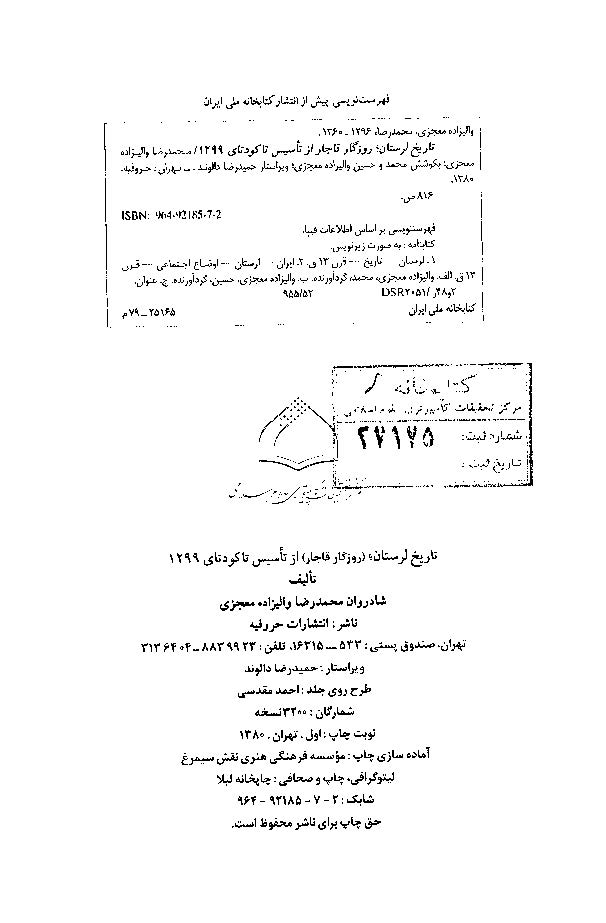 فهرست‌نویسی پیش از انتشار کتابخانه ملی ایران
والیزاده معجزی، محمدرضا، ۱۲۹۶ - ۱۳۶۰.
تاریخ لرستان؛ روزگار قاجار از تأسیس تا کودتای ۱۲۹۹/ محمدرضا والیزاده
معجزی؛ بکوشش محمد و حسین والیزاده معجزی؛ ویراستار حمیدرضا دالوند. ــ تهران: حروفیه،
۱۳۸۰.
۸۱۶ص.
ISBN: 964-92185-7-2
فهرستنویسی بر اساس اطلاعات فیپا.
کتابنامه: به صورت زیرنویس.
۱. لرستان -- تاریخ -- قرن ۱۳ ق. ۲. ایران -- لرستان -- اوضاع اجتماعی -- قرن
۱۳ ق. الف. والیزاده معجزی، محمد، گردآورنده. ب. والیزاده معجزی، حسین، گردآورنده. ج. عنوان.
۹۵۵/۵۲ DSR۲۰۵۱/ر۴۸و۲
کتابخانه ملی ایران ۲۵۱۶۵ــ۷۹م
کتابخانه
مرکز تحقیقات کامپیوتری علوم اسلامی
شماره ثبت: ۲۷۱۷۵
تاریخ ثبت:
تاریخ لرستان؛ (روزگار قاجار) از تأسیس تا کودتای ۱۲۹۹
تألیف
شادروان محمدرضا والیزاده معجزی
ناشر: انتشارات حروفیه
تهران، صندوق پستی: ۵۳۳ ــ ۱۶۳۱۵، تلفن: ۸۸۳۹۹۲۳ ــ ۳۱۳۶۴۰۴
ویراستار: حمیدرضا دالوند
طرح روی جلد: احمد مقدسی
شمارگان: ۳۲۰۰نسخه
نوبت چاپ: اول. تهران. ۱۳۸۰
آماده سازی چاپ: مؤسسه فرهنگی هنری نقش سیمرغ
لیتوگرافی، چاپ و صحافی: چاپخانه لیلا
شابک: ۲ - ۷ - ۹۲۱۸۵ - ۹۶۴
حق چاپ برای ناشر محفوظ است.